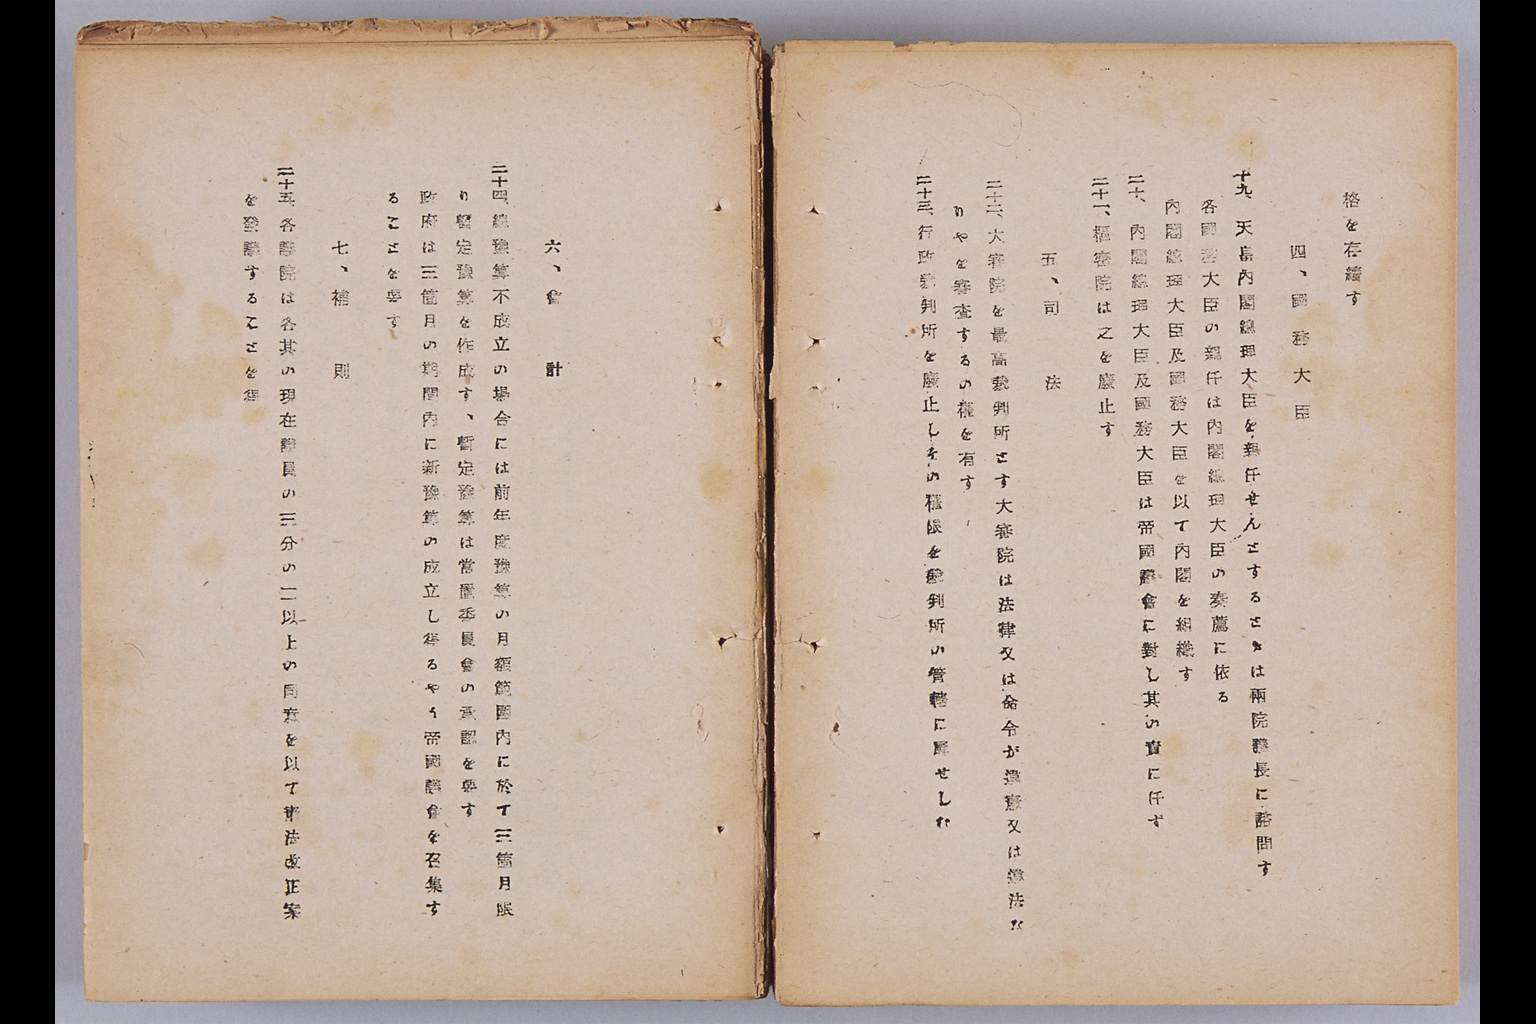 格を存續す
四、國務大臣
十九、天皇內閣總理大臣を親任せんとするときは兩院議長に諮問す
各國務大臣の親任は內閣總理大臣の奏薦に依る
內閣總理大臣及國務大臣を以て內閣を組織す
二十、內閣總理大臣及國務大臣は帝國議會に對し其の責に任ず
二十一、樞密院は之を廢止す
五、司法
二十二、大審院を最高裁判所とす大審院は法律又は命令が違憲又は違法な
りやを審査するの權を有す
二十三、行政裁判所を廢止しその權限を裁判所の管轄に屬せしむ
六、會計
二十四、總豫算不成立の場合には前年度豫算の月額範圍內に於て三箇月限
り暫定豫算を作成す、暫定豫算は常置委員會の承認を要す
政府は三箇月の期間內に新豫算の成立し得るやう帝國議會を召集す
ることを要す
七、補則
二十五、各議院は各其の現在議員の三分の二以上の同意を以て憲法改正案
を發議することを得